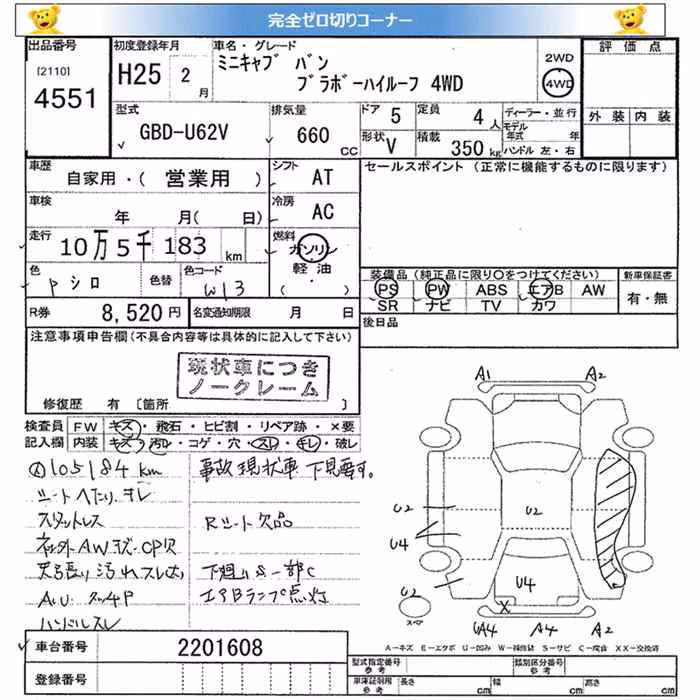 完全ゼロ切りコーナー
出品番号
[2110]
4551
初度登録年月
H25 2 月
車名・グレード
ミニキャブ バン
ブラボーハイルーフ 4WD
2WD
4WD
評価点
外装 内装
型式
GBD-U62V
排気量
660 CC
ドア 5
形状 V
定員 4 人
積載 350 kg
ディーラー・並行
モデル年式 年
ハンドル 左・右
車歴
自家用・( 営業用 )
シフト AT
セールスポイント (正常に機能するものに限ります)
車検 年 月( 日)
冷房 AC
走行 10万5千183 km
燃料 ガソリン
軽油
( ・ )
色 Pシロ
色替
色コード W13
装備品 (純正品に限り○をつけてください)
PS PW ABS エアB AW
SR ナビ TV カワ
新車保証書
有・無
R券 8,520円
名変通知期限 月 日
後日品
注意事項申告欄(不具合内容等は具体的に記入して下さい)
現状車につき
ノークレーム
修復歴 有 [箇所 ]
検査員記入欄
FW キズ・飛石・ヒビ割・リペア跡・×要
内装 キズ・汚れ・コゲ・穴・スレ・キレ・破レ
105184km
事故現状車 下見要す。
シートへたり、ヨレ
スタットレス
Rシート欠品
下廻りS一部C
エアBランプ点灯
ハンドルスレ
A1 A2
U2
U4
U2
U2
U4
X
UA4 A4 A2
スペア
A－キズ E－エクボ U－凹み W－補修跡 S－サビ C－腐食 XX－交換済
車台番号 2201608
登録番号
型式指定番号 参考
類別区分番号 参考
車庫証明用 参考
長さ cm
幅 cm
高さ cm